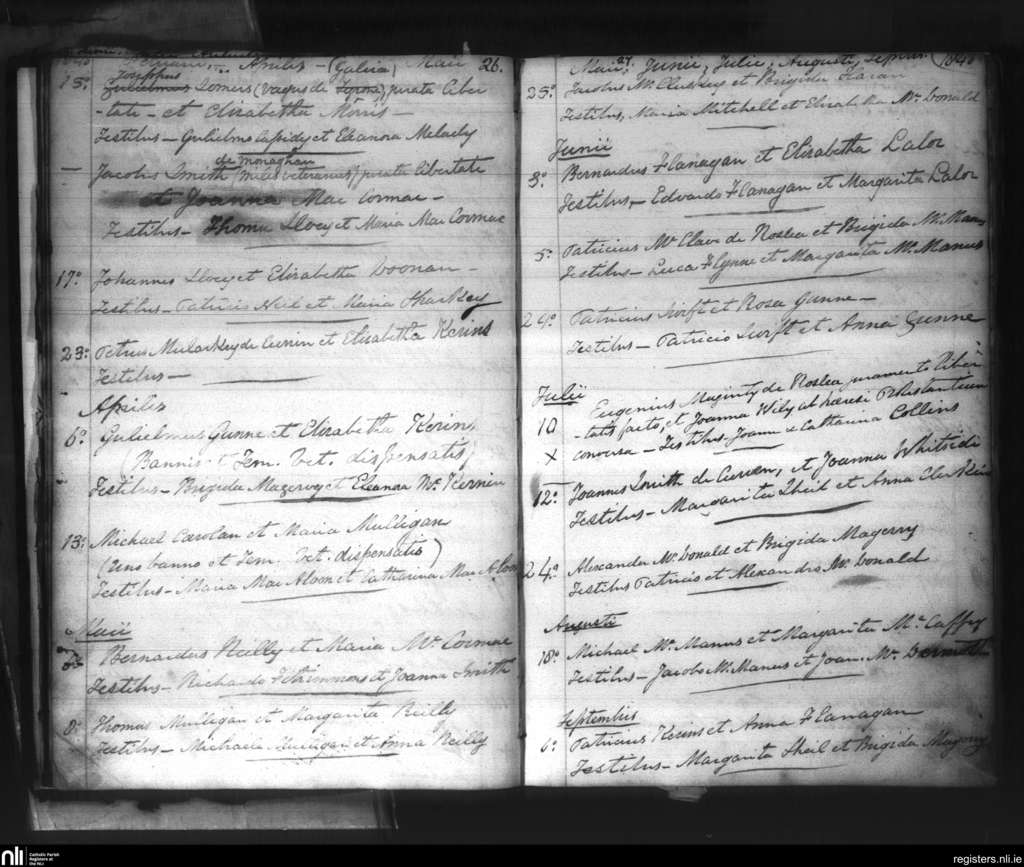 Aprilis - (Galvia) Maii 26.
Josephus
15º Gulielmus Somers (vagus de Tyrone) jurata liber
-tate - et Elizabetha Morris -
Testibus - Gulielmo Cassidy et Eleanora Melarky
de Monaghan
- Jacobus Smith (miles veteranus) jurata libertate
et Joanna Mac Cormac -
Testibus - Thoma Llocy et Maria Mac Cormac
17º Johannes Llocy et Elizabetha Doonan -
Testibus - Patricio Neil et Maria Sharkey
23º Petrus Mularkey de Currin et Elizabetha Kerins
Testibus -
Aprilis
6º Gulielmus Gunne et Elizabetha Kerins
(Bannis et Tem. Vet. dispensatis)
Testibus - Brigida Magervey et Eleanora Mc Kernin
13º Michael Carolan et Maria Mulligan
(Uno banno et Tem. Vet. dispensatis)
Testibus - Maria Mac Aloon et Catharina Mac Aloon
Maii
Bernardus Reilly et Maria Mc Cormac
Testibus - Richardo Fitzsimmons et Joanna Smith
8º Thomas Mulligan et Margarita Reilly
Testibus - Michaele Mulligan et Anna Reilly
Maii, 27. Junii, Julii, Augusti, Septris. 1840
25º Jacobus Mc Cluskey et Brigida Kieran
Testibus, Maria Mitchell et Elizabetha Mc Donald
Junii
3º Bernardus Flanagan et Elizabetha Lalor
Testibus, - Edvardo Flanagan et Margarita Lalor
5º Patricius Mc Clave de Roslea et Brigida Mc Manus
Testibus - Luca Flynne et Margarita Mc Manus
24º Patricius Swift et Rosa Gunne -
Testibus - Patricio Swift et Anna Gunne
Julii
10 Eugenius Maginty de Roslea juramento liber
-tatis facto, et Joanna Wily ab hæresi Protestantium
x conversa - Testibus - Joanne & Catharina Collins
12º Joannes Smith de Currin, et Joanna Whitside
Testibus - Margarita Sheil et Anna Clerkin
24º Alexander Mc Donald et Brigida Magerry
Testibus Patricio et Alexandro Mc Donald
Augusti
18º Michael Mc Manus et Margarita Mc Caffry
Testibus - Jacobo Mc Manus et Joan. Mc Dermott
Septembris
6º Patricius Kerins et Anna Flanagan
Testibus - Margarita Sheil et Brigida Magerry
nli Catholic Parish
Registers at
the NLI
registers.nli.ie